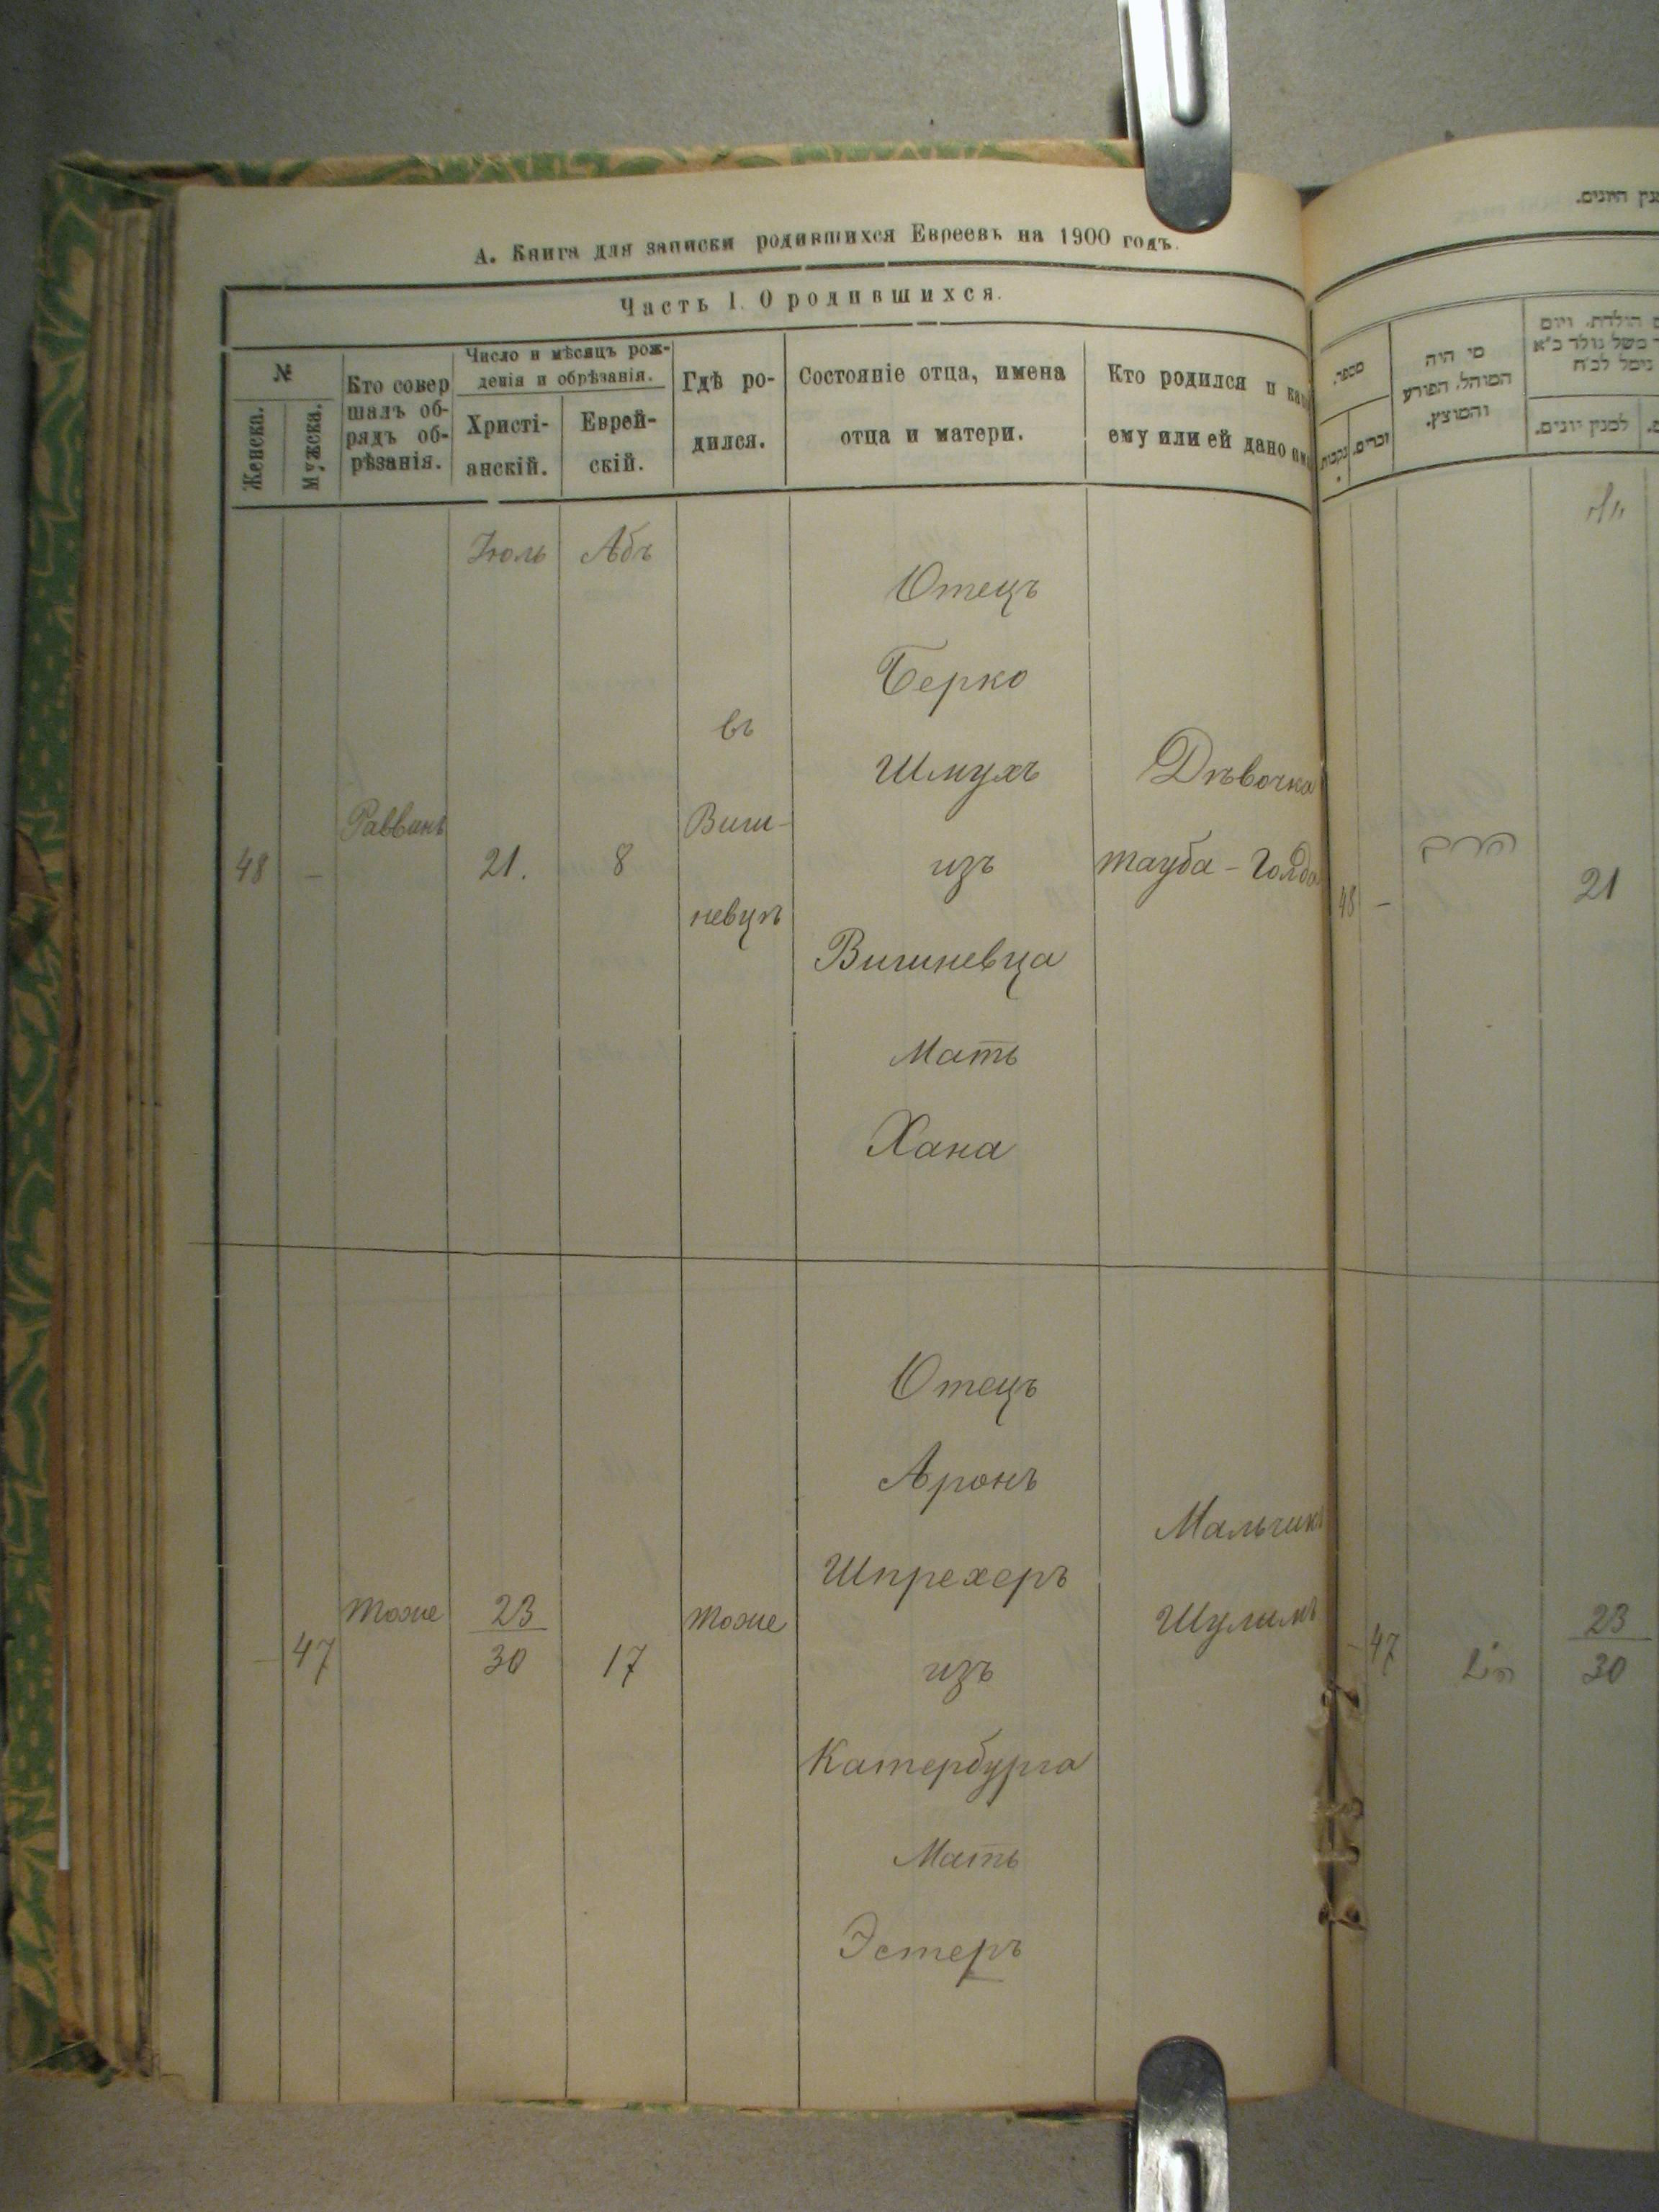 А. Книга для записки родившихся Евреевъ на 1900 годъ.
Часть I. О родившихся.
№
Женска.
Мужска.
Кто совер
шалъ об-
рядъ об-
рѣзанія.
Число и мѣсяцъ рож-
денія и обрѣзанія.
Христі-
анскій.
Еврей-
скій.
Гдѣ ро-
дился.
Состояніе отца, имена
отца и матери.
Кто родился и
ему или ей дано
Іюль
Абъ
48
-
Раввинъ
21.
8
въ
Виш-
невцѣ
Отецъ
Берко
Шмухъ
изъ
Вишневца
Мать
Хана
Дѣвочка
Тауба - Голда
-
47
Тоже
23
30
17
Тоже
Отецъ
Аронъ
Шпрехеръ
изъ
Катербурга
Мать
Эстеръ
Мальчикъ
Шулимъ
מספר.
נקבות.
זכרים.
מי היה
המוהל, הפורע
והמוצץ.
למנין יונים.
יולי
48
-
הרב
21
-
47
הנ"ל
23
30